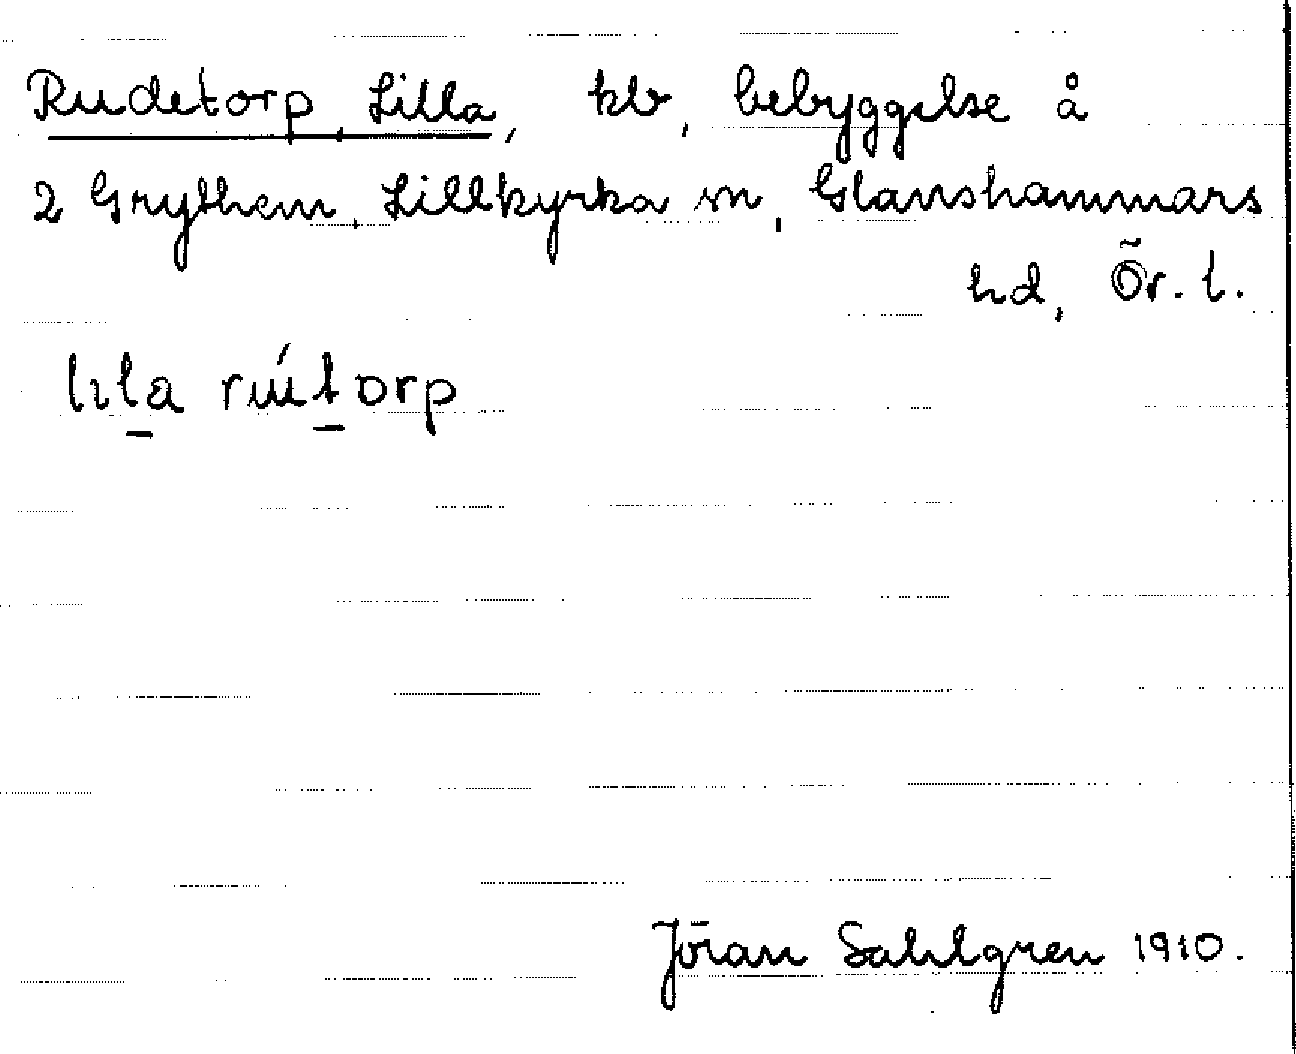 Rudetorp, Lilla, kb, bebyggelse å
2 Grythem, Lillkyrka sn, Glanshammars
hd, Ör. l.
lıl̲a rút̲orp
Jöran Sahlgren 1910.